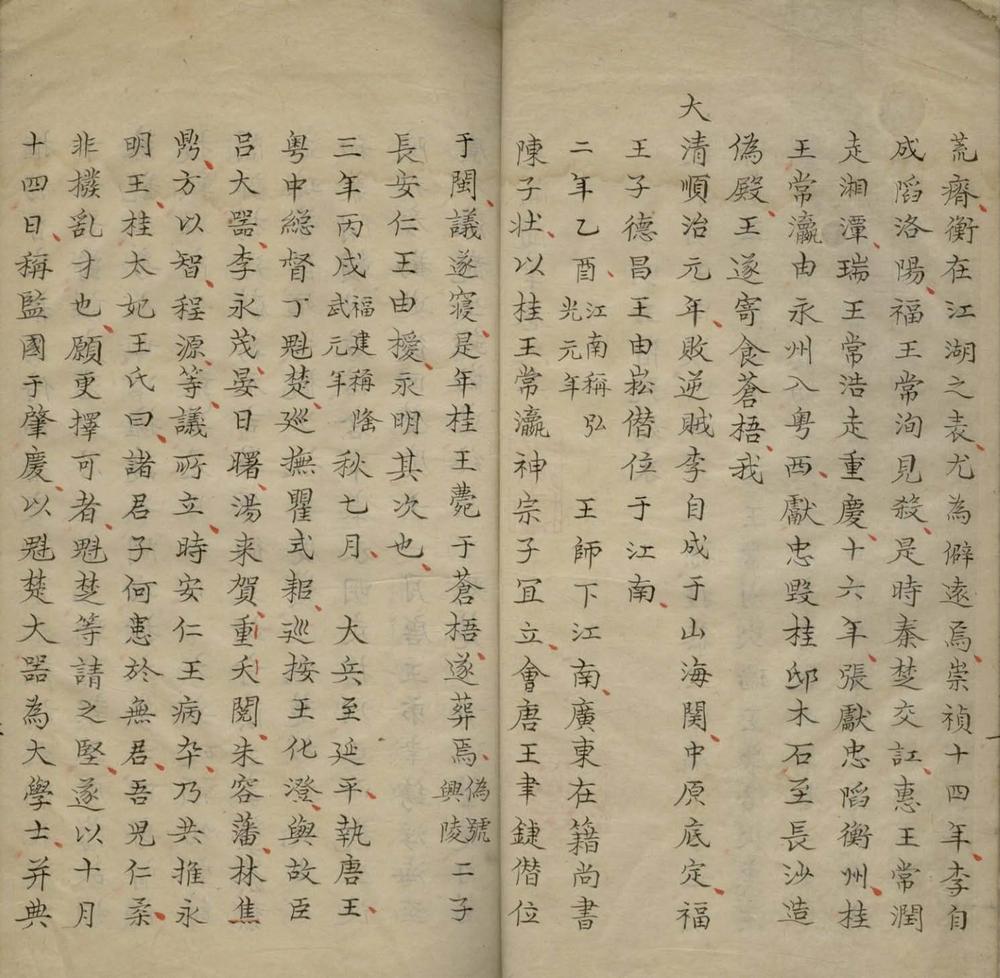 荒瘠衡在江湖之表尤為僻遠焉崇禎十四年李自
成䧟洛陽福王常洵見殺是時秦楚交訌惠王常潤
走湘潭瑞王常浩走重慶十六年張獻忠䧟衡州桂
王常瀛由永州入粤西獻忠毀桂邸木石至長沙造
偽殿王遂寄食蒼梧我
大清順治元年敗逆賊李自成于山海関中原底定福
王子德昌王由崧僣位于江南
二年乙酉江南稱弘光元年王師下江南廣東在籍尚書
陳子壯以桂王常瀛神宗子冝立會唐王聿鍵僣位
于閩議遂寢是年桂王薨于蒼梧遂葬焉偽號興陵二子
長安仁王由㰠永明其次也
三年丙戌福建稱隆武元年秋七月大兵至延平執唐王
粤中総督丁魁楚廵撫瞿式耜廵按王化澄與故臣
呂大噐李永茂晏日曙湯来賀重夭閱朱容藩林焦
鼎方以智程源等議所立時安仁王病卒乃共推永
明王桂太妃王氏曰諸君子何患於無君吾兒仁柔
非撥乱才也願更擇可者魁楚等請之堅遂以十月
十四日稱監國于肇慶以魁楚大噐為大學士并典